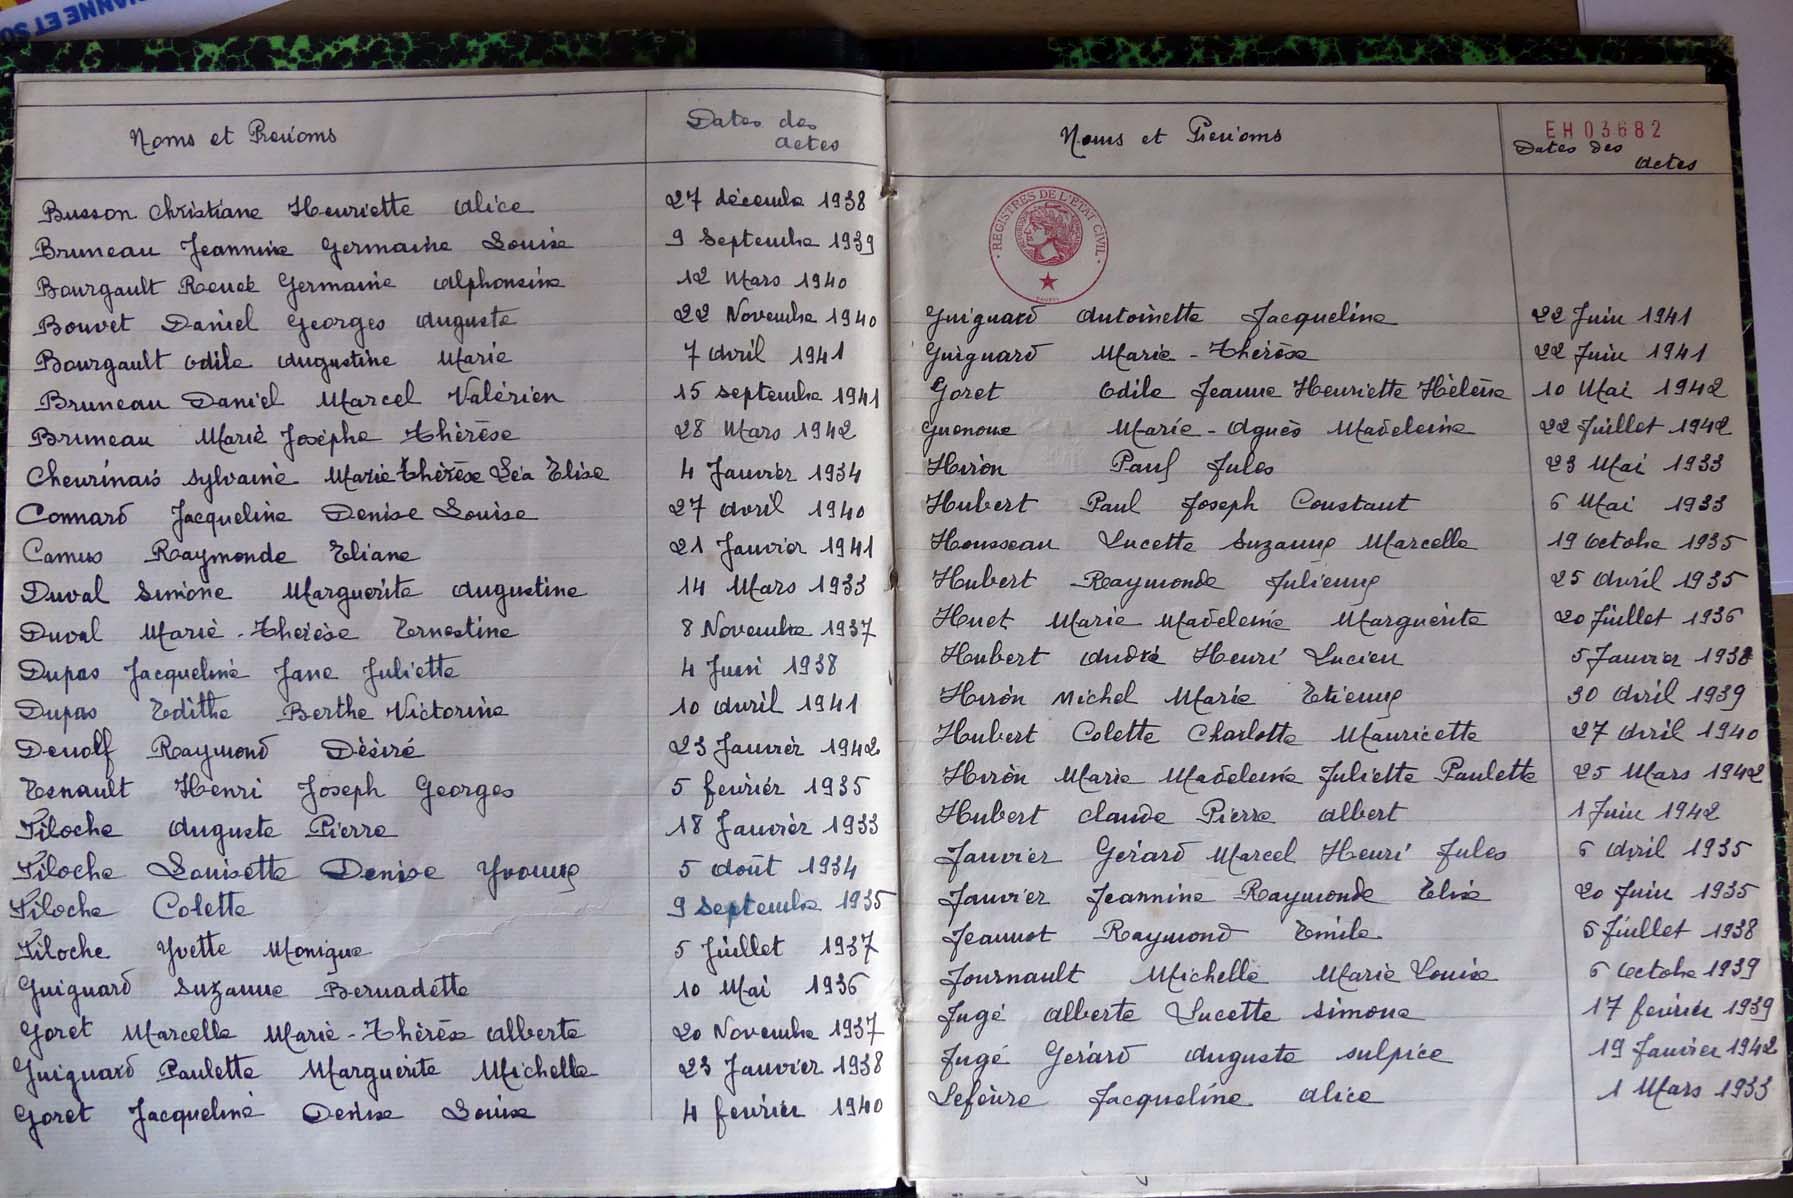 Noms et Prénoms
Dates des
actes
Busson Christiane Henriette Alice 27 décembre 1938
Bruneau Jeannine Germaine Louise 9 Septembre 1939
Bourgault Renée Germaine Alphonsine 12 Mars 1940
Bouvet Daniel Georges Auguste 22 Novembre 1940
Bourgault Odile Augustine Marie 7 Avril 1941
Bruneau Daniel Marcel Valérien 15 septembre 1941
Bruneau Marie Josèphe Thérèse 28 Mars 1942
Cheurinais Sylvaine Marie Thérèse Léa Elise 4 Janvier 1934
Connard Jacqueline Denise Louise 27 Avril 1940
Camus Raymonde Eliane 21 Janvier 1941
Duval Simone Marguerite Augustine 14 Mars 1933
Duval Marie-Thérèse Ernestine 8 Novembre 1937
Dupas Jacqueline Jane Juliette 4 Juin 1938
Dupas Edithe Berthe Victorine 10 Avril 1941
Denolf Raymond Désiré 23 Janvier 1942
Esnault Henri Joseph Georges 5 février 1935
Filoche Auguste Pierre 18 Janvier 1933
Filoche Louisette Denise Yvonne 5 Août 1934
Filoche Colette 9 Septembre 1935
Filoche Yvette Monique 5 Juillet 1937
Guignard Suzanne Bernadette 10 Mai 1936
Goret Marcelle Marie-Thérèse Alberte 20 Novembre 1937
Guignard Paulette Marguerite Michelle 23 Janvier 1938
Goret Jacqueline Denise Louise 4 février 1940
Noms et Prénoms
EH03682
Dates des
Actes
REGISTRES DE L'ÉTAT CIVIL
Guignard Antoinette Jacqueline 22 Juin 1941
Guignard Marie-Thérèse 22 Juin 1941
Goret Odile Jeanne Henriette Hélène 10 Mai 1942
Guenoue Marie-Agnès Madeleine 22 Juillet 1942
Hiron Paul Jules 23 Mai 1933
Hubert Paul Joseph Constant 6 Mai 1933
Housseau Lucette Suzanne Marcelle 19 Octobre 1935
Hubert Raymonde Julienne 25 Avril 1935
Huet Marie Madeleine Marguerite 20 Juillet 1936
Hubert André Henri Lucien 5 Janvier 1938
Hiron Michel Marie Etienne 30 Avril 1939
Hubert Colette Charlotte Mauricette 27 Avril 1940
Hiron Marie Madeleine Juliette Paulette 25 Mars 1942
Hubert Claude Pierre Albert 1 Juin 1942
Janvier Gérard Marcel Henri Jules 6 Avril 1935
Janvier Jeannine Raymonde Elise 20 Juin 1935
Jeannot Raymond Emile 5 Juillet 1938
Journault Michelle Marie Louise 6 Octobre 1939
Jugé Alberte Lucette Simone 17 février 1939
Jugé Gérard Auguste Sulpice 19 Janvier 1942
Lefèvre Jacqueline Alice 1 Mars 1933